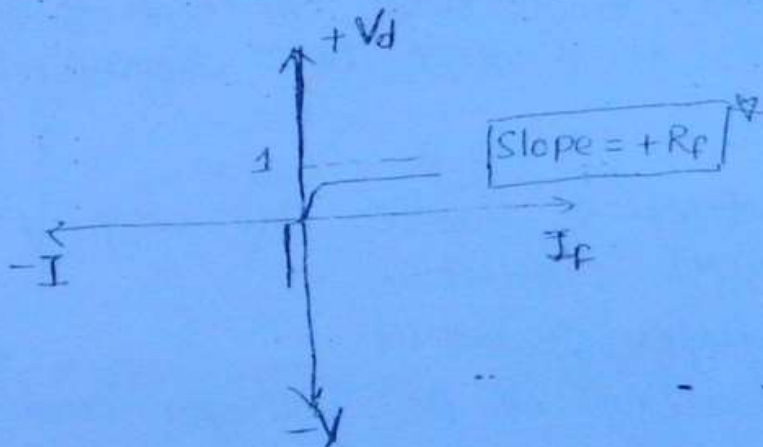 +Vd
1
Slope = +Rf
-I
If
-V